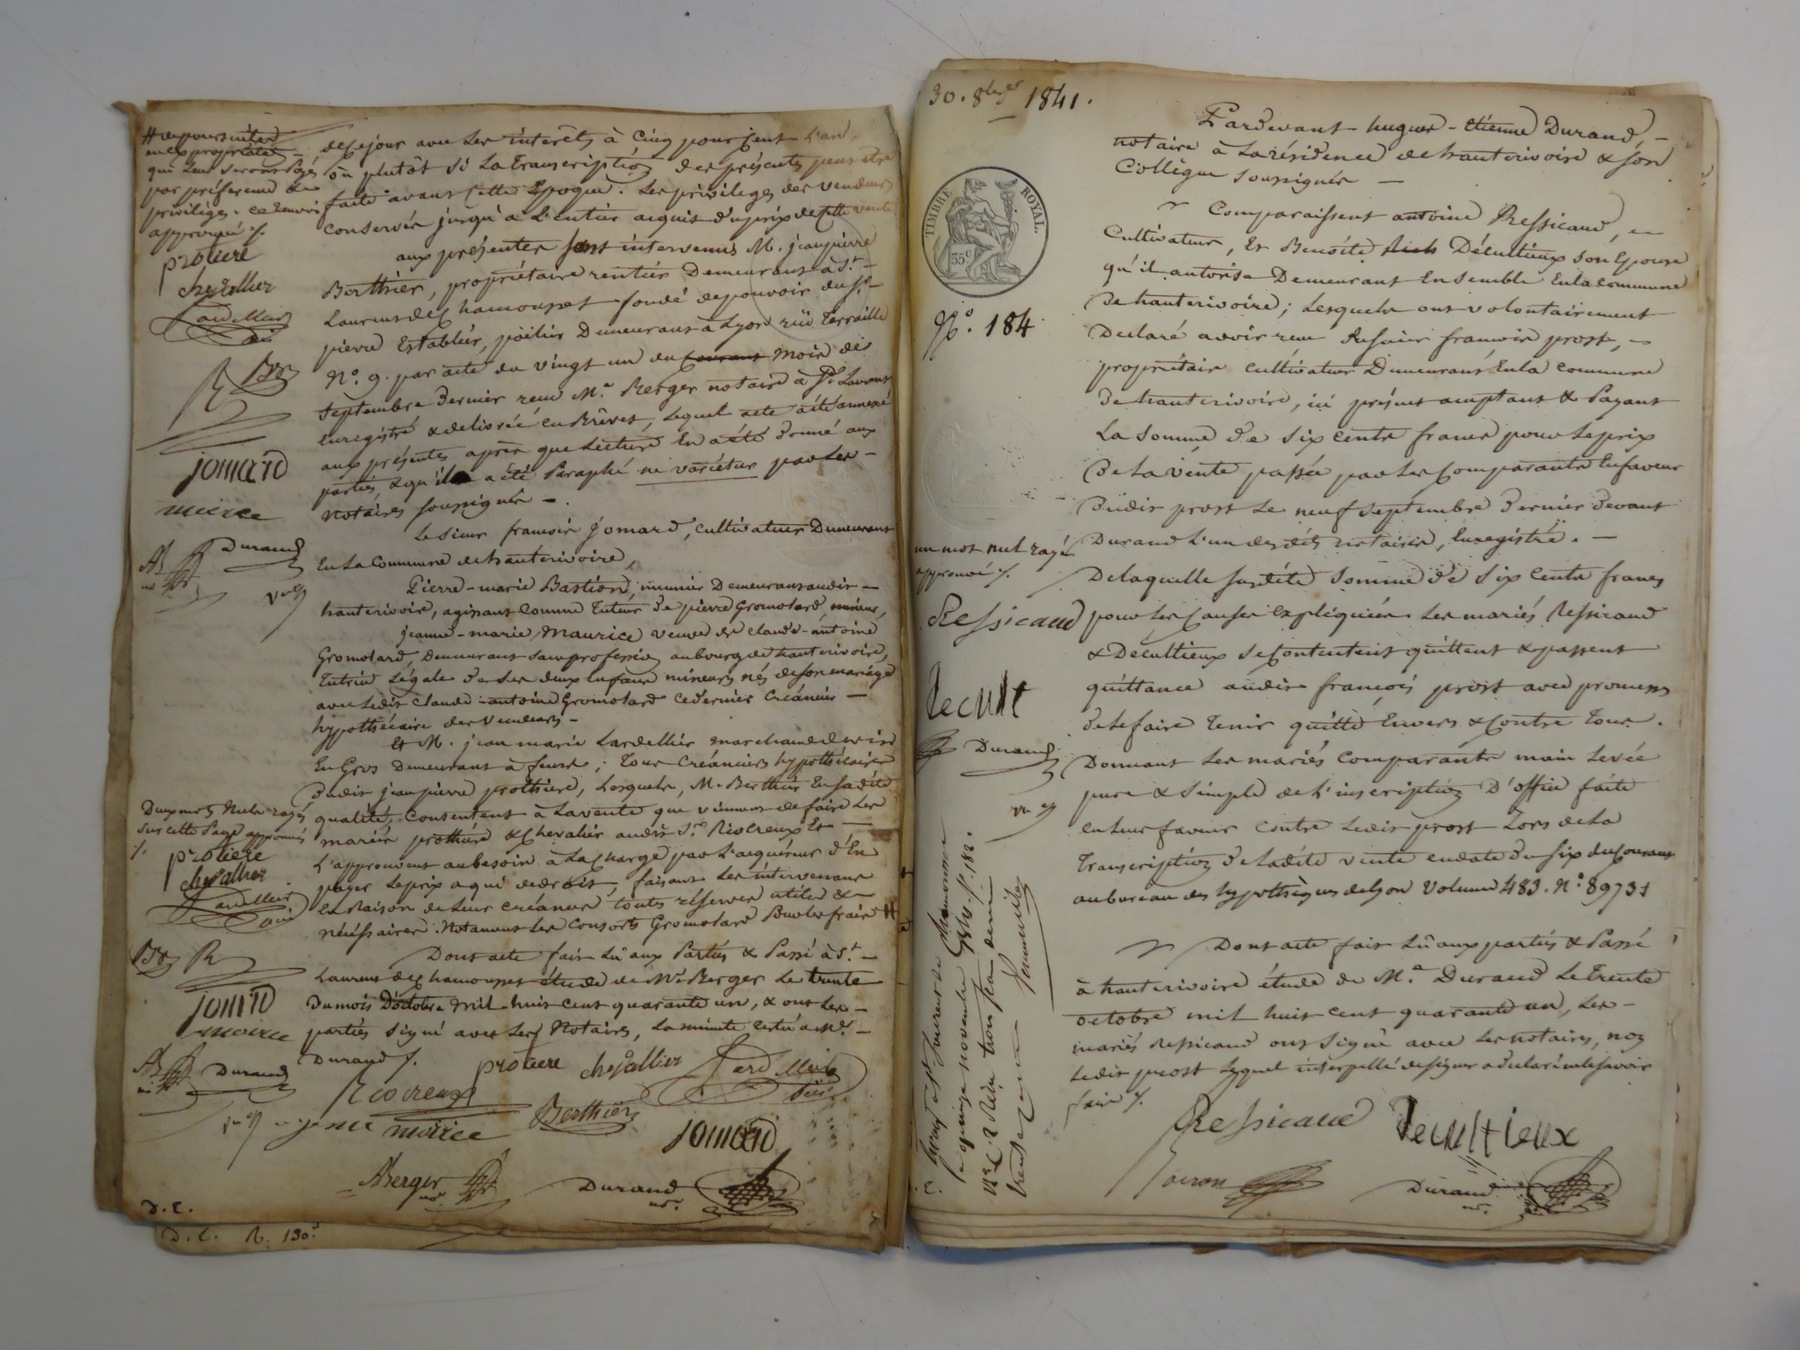 # de poursuites
en expropriation
qui leur seront payés
par préférence &
privilége. ce renvoi
approuvé ./.
protiere
chevallier
Lardellier
R BR
jomard
moirce
AB Durand
no
de ce jour avec les interêts à Cinq pour cent l'an,
ou plutôt si la transcription des présentes peut être
faite avant cette Epoque. les priviléges des vendeurs
conservés jusqu'a l'entier acquis du prix de cette vente
aux présentes sont intervenus M. jean pierre
Berthier, propriétaire rentier Demeurant à St.
Laurent de Chamousset fondé de pouvoir du Sr.
pierre Establier, poëlier Demeurant à Lyon rüe Ferraille
No. 9. par acte du vingt un du courant mois de
septembre dernier reçu Me. Berger notaire à St. Laurent
Enregistré & délivrée en Brévet, lequel acte a été annexé
aux présentes après que lecture En a été donné aux
parties, & qu'il a été Paraphé ne varietur par les
notaires soussignés.
Le Sieur françois jomard, cultivateur Demeurant
En la Commune de hauterivoire,
Pierre-marie Bastion, menuisier Demeurant audit
hauterivoire, agissant comme Tuteur de pierre Gromolard, mineur,
jeanne-marie Maurice veuve de claude-antoine
Gromolard, Demeurant sans profession au bourg de hauterivoire,
Tutrice légale de ses deux enfans mineurs nés de son mariage
avec ledit claude-antoine Gromolard ce dernier créancier
hypothécaire des vendeurs
Et M. jean marie Lardellier marchand
En Gros Demeurant à feurs; Tous Créanciers hypothécaires
Dudit jean pierre prothiere, Lesquels, M. Berthier En sadite
qualité, Consentent à la vente que viennent de faire les
mariés prothiere & Chevalier audit Sr. Riocreux Et
L'approuvent au besoin à la charge par l'acquéreur d'En
payer le prix à qui de droit, faisant les intervenans
En Raison de leur créance toutes réserves utiles &
nécessaires. Notamment les Consorts Gromolard Pour les frais #
Dont acte fait Lû aux Parties & Passé à St.
Laurent de Chamousset étude de Me. Berger Le trente
Du mois D'octobre mil-huit cent quarante un, & ont les
parties signé avec les Notaires, La minute restée à Me.
Durand ./.
Deux mots Nuls rayés
sur cette Page approuvés
./.
protiere
chevallier
Lardellier
BR R
jomard
moirce
AB Durand
protiere chevallier Lardellier
Riocreux
Berthier
moirce
jomard
Berger
no.
Durand
no.
D. E.
D. E. R. 130.
30. 8bre 1841.
TIMBRE ROYAL.
35c
No. 184
Pardevant hugues-Etienne Durand,
notaire à la résidence de hauterivoire & son
Collègue soussignés
Comparaissent antoine Ressicaud,
Cultivateur, Et Benoite Décultieux son Epouse
qu'il autorise Demeurant Ensemble En la commune
De hauterivoire; Lesquels ont volontairement
Déclaré avoir reçu du Sieur françois prost,
propriétaire cultivateur Demeurant En la commune
De hauterivoire, ici présent acceptant & Payant
La somme de six cents francs pour le prix
De la vente passée par les Comparants En faveur
Dudit prost Le neuf septembre dernier devant
Durand L'un desdits notaires, Enregistré.
De laquelle susdite somme de six cents francs
pour les causes expliquées les mariés Ressicaud
& Décultieux se contentent quittent & passent
quittance audit françois prost avec promesse
de le faire tenir quitte Envers & Contre Tous.
Donnant les mariés Comparants main levée
pure & simple de l'inscription D'office faite
en leur faveur contre ledit prost Lors de la
Transcription de ladite vente en date du six du Courant
au bureau des hypothèques de Lyon Volume 483. No. 89731
Dont acte fait Lû aux parties & Passé
à hauterivoire étude de Me. Durand Le trente
octobre mil huit cent quarante un, Les
mariés Ressicaud ont signé avec les notaires, non
ledit prost lequel interpellé de signer a déclaré ne le savoir
faire ./.
un mot nul rayé
approuvé ./.
Ressicaud
Decult
Durand
Enregistré à St Laurent de Chamousset
le quinze novembre 1841. fo. 182.
Ressicaud Decultieux
Durand
no.